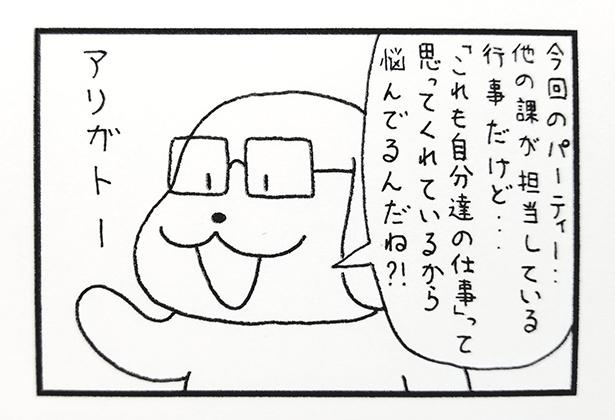 今回のパーティー…
他の課が担当している
行事だけど…
「これも自分達の仕事」って
思ってくれているから
悩んでるんだね?!
アリガトー